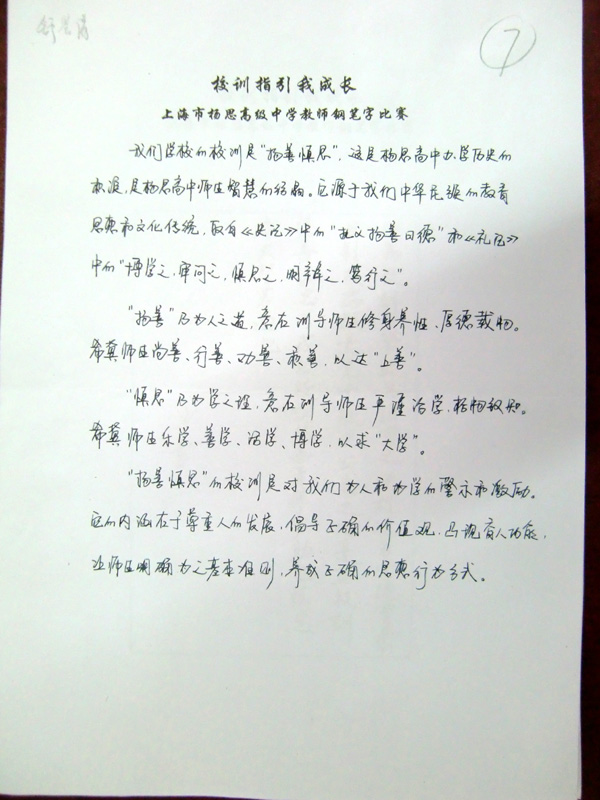 7
校训指引我成长
上海市杨思高级中学教师钢笔字比赛
我们学校的校训是“扬善慎思”，这是杨思高中办学历史的
积淀，是杨思高中师生智慧的结晶。它源于我们中华民族的教育
思想和文化传统，取自《史记》中的“扬善日德”和《礼记》
中的“博学之，审问之，慎思之，明辨之，笃行之”。
“扬善”乃为人之道，意在训导师生修身养性、厚德载物。
希冀师生尚善、行善、劝善、积善，以达“上善”。
“慎思”乃为学之道，意在训导师生严谨治学，格物致知。
希冀师生乐学、善学、活学、博学，以求“大学”。
“扬善慎思”的校训是对我们为人和为学的警示和激励。
它的内涵在于尊重人的发展，倡导正确的价值观，凸现育人功能，
让师生明确为之基本准则，养成正确的思想行为方式。